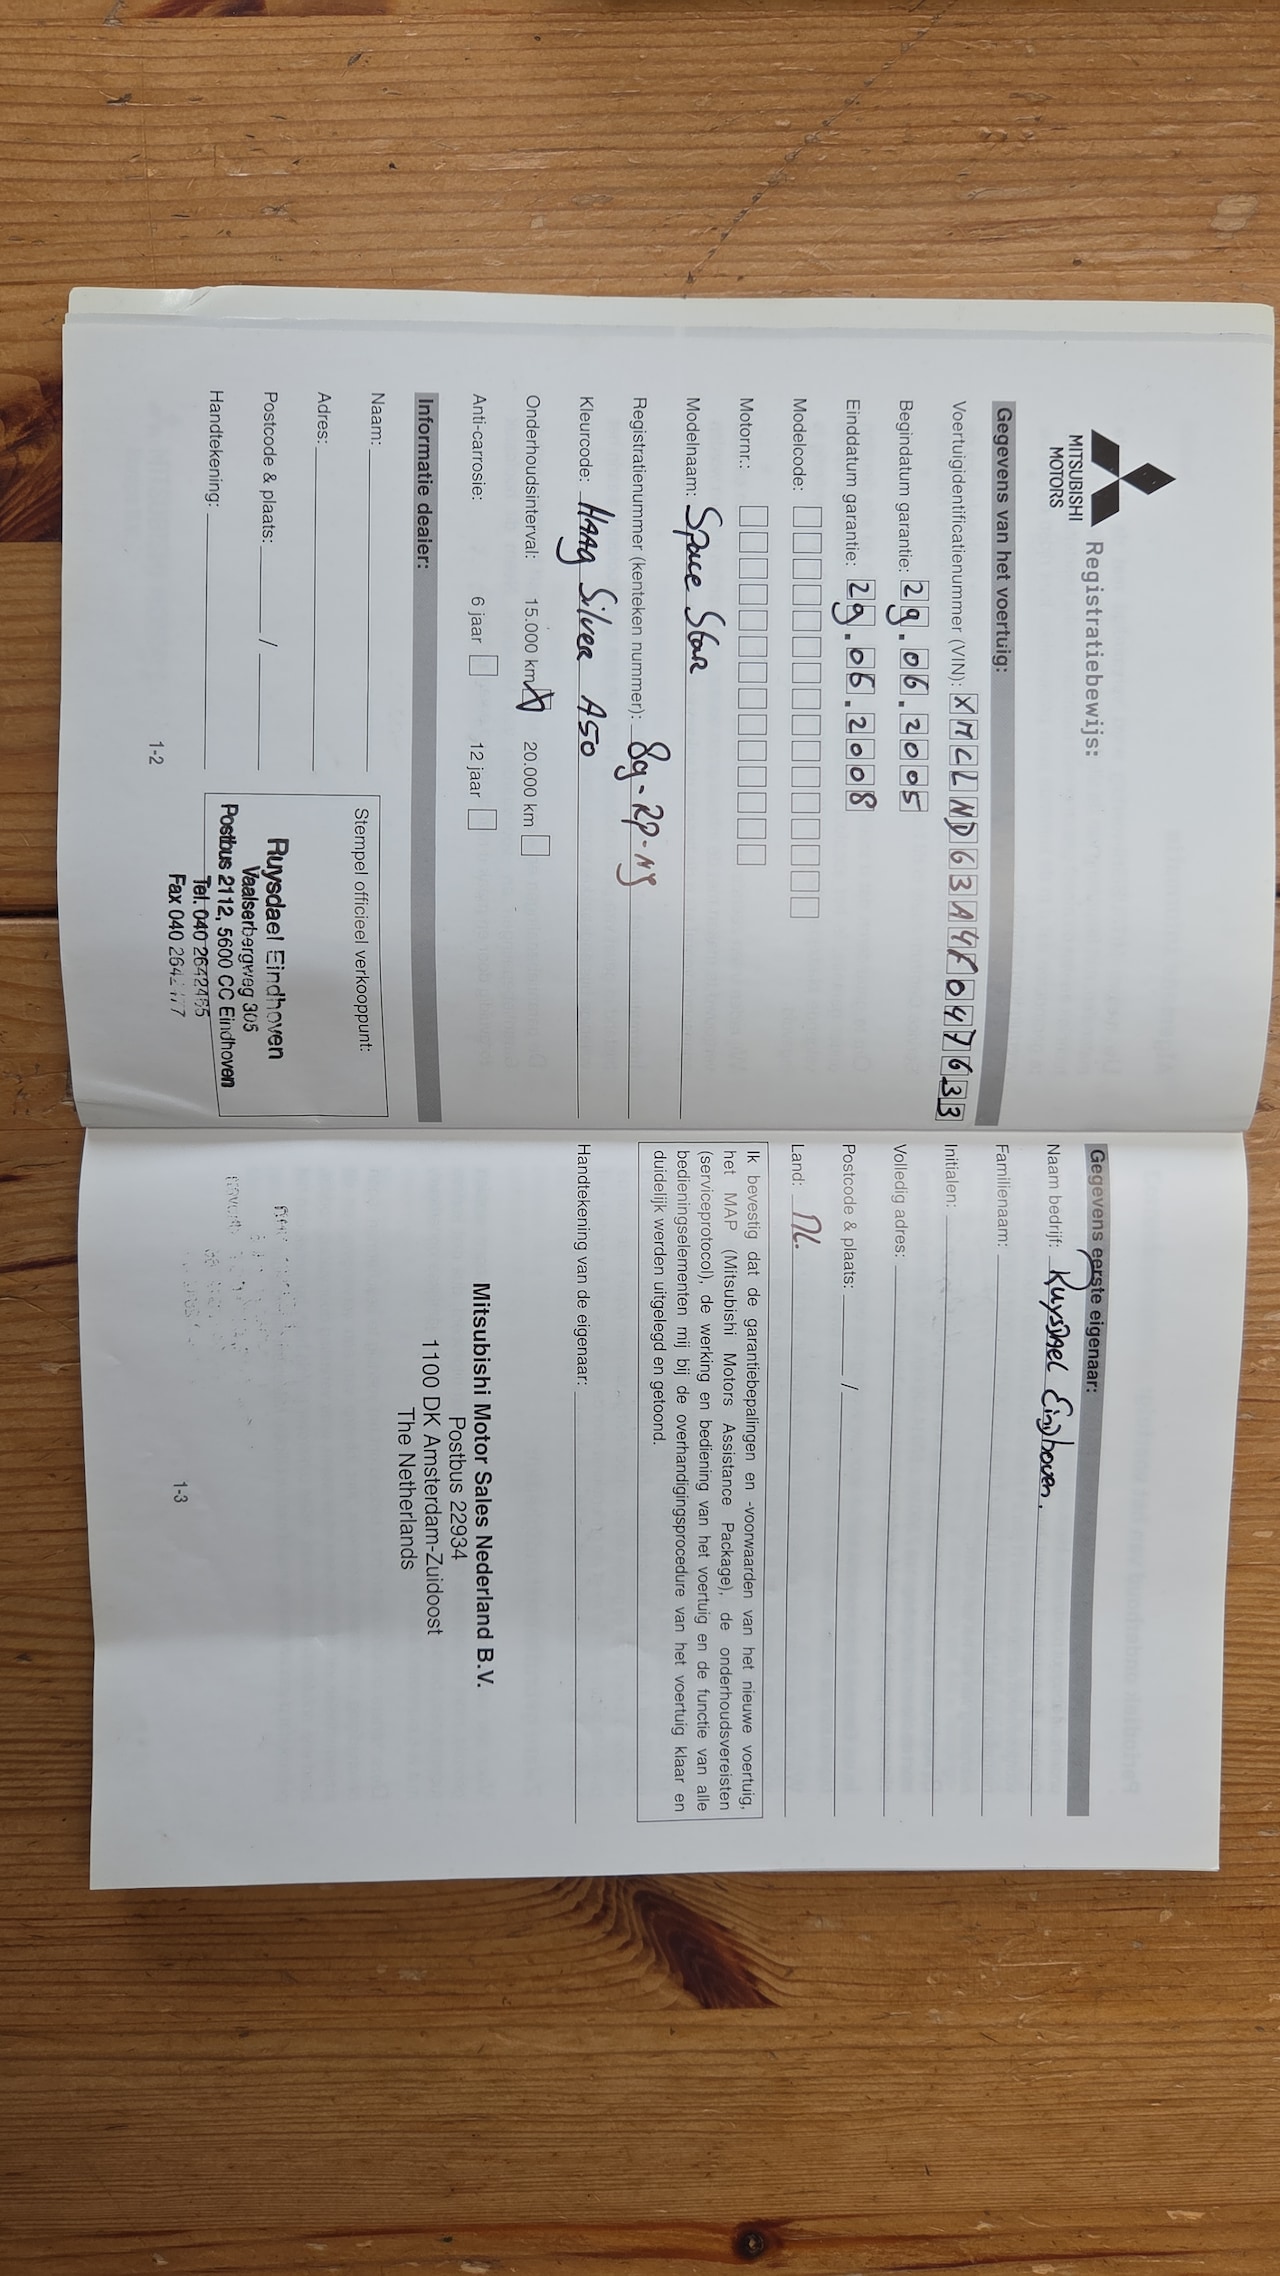 MITSUBISHI
MOTORS
Registratiebewijs:
Gegevens van het voertuig:
Voertuigidentificatienummer (VIN): XMCLND63A4F047633
Begindatum garantie: 29.06.2005
Einddatum garantie: 29.06.2008
Modelcode:
Motornr.:
Modelnaam: Space Star
Registratienummer (kenteken nummer): 89-RP-NJ
Kleurcode: HAAG Silver A50
Onderhoudsinterval: 15.000 km X 20.000 km
Anti-carrosie: 6 jaar 12 jaar
Informatie dealer:
Naam:
Adres:
Postcode & plaats: /
Handtekening:
Stempel officieel verkooppunt:
Ruysdael Eindhoven
Vaalserbergweg 305
Postbus 2112, 5600 CC Eindhoven
Tel. 040 2642465
Fax 040
1-2
Gegevens eerste eigenaar:
Naam bedrijf: Ruysdael Eindhoven.
Familienaam:
Initialen:
Volledig adres:
Postcode & plaats: /
Land: NL.
Ik bevestig dat de garantiebepalingen en -voorwaarden van het nieuwe voertuig,
het MAP (Mitsubishi Motors Assistance Package), de onderhoudsvereisten
(serviceprotocol), de werking en bediening van het voertuig en de functie van alle
bedieningselementen mij bij de overhandigingsprocedure van het voertuig klaar en
duidelijk werden uitgelegd en getoond.
Handtekening van de eigenaar:
Mitsubishi Motor Sales Nederland B.V.
Postbus 22934
1100 DK Amsterdam-Zuidoost
The Netherlands
1-3